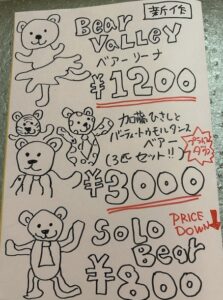 新作
BEAR
VALLEY
ベアーリーナ
¥1200
加藤ひさしと
バーチャートかモルダンス
ベアー
(3匹セット!!)
¥3000
PRICE
DOWN
SOLO
Bear
¥800